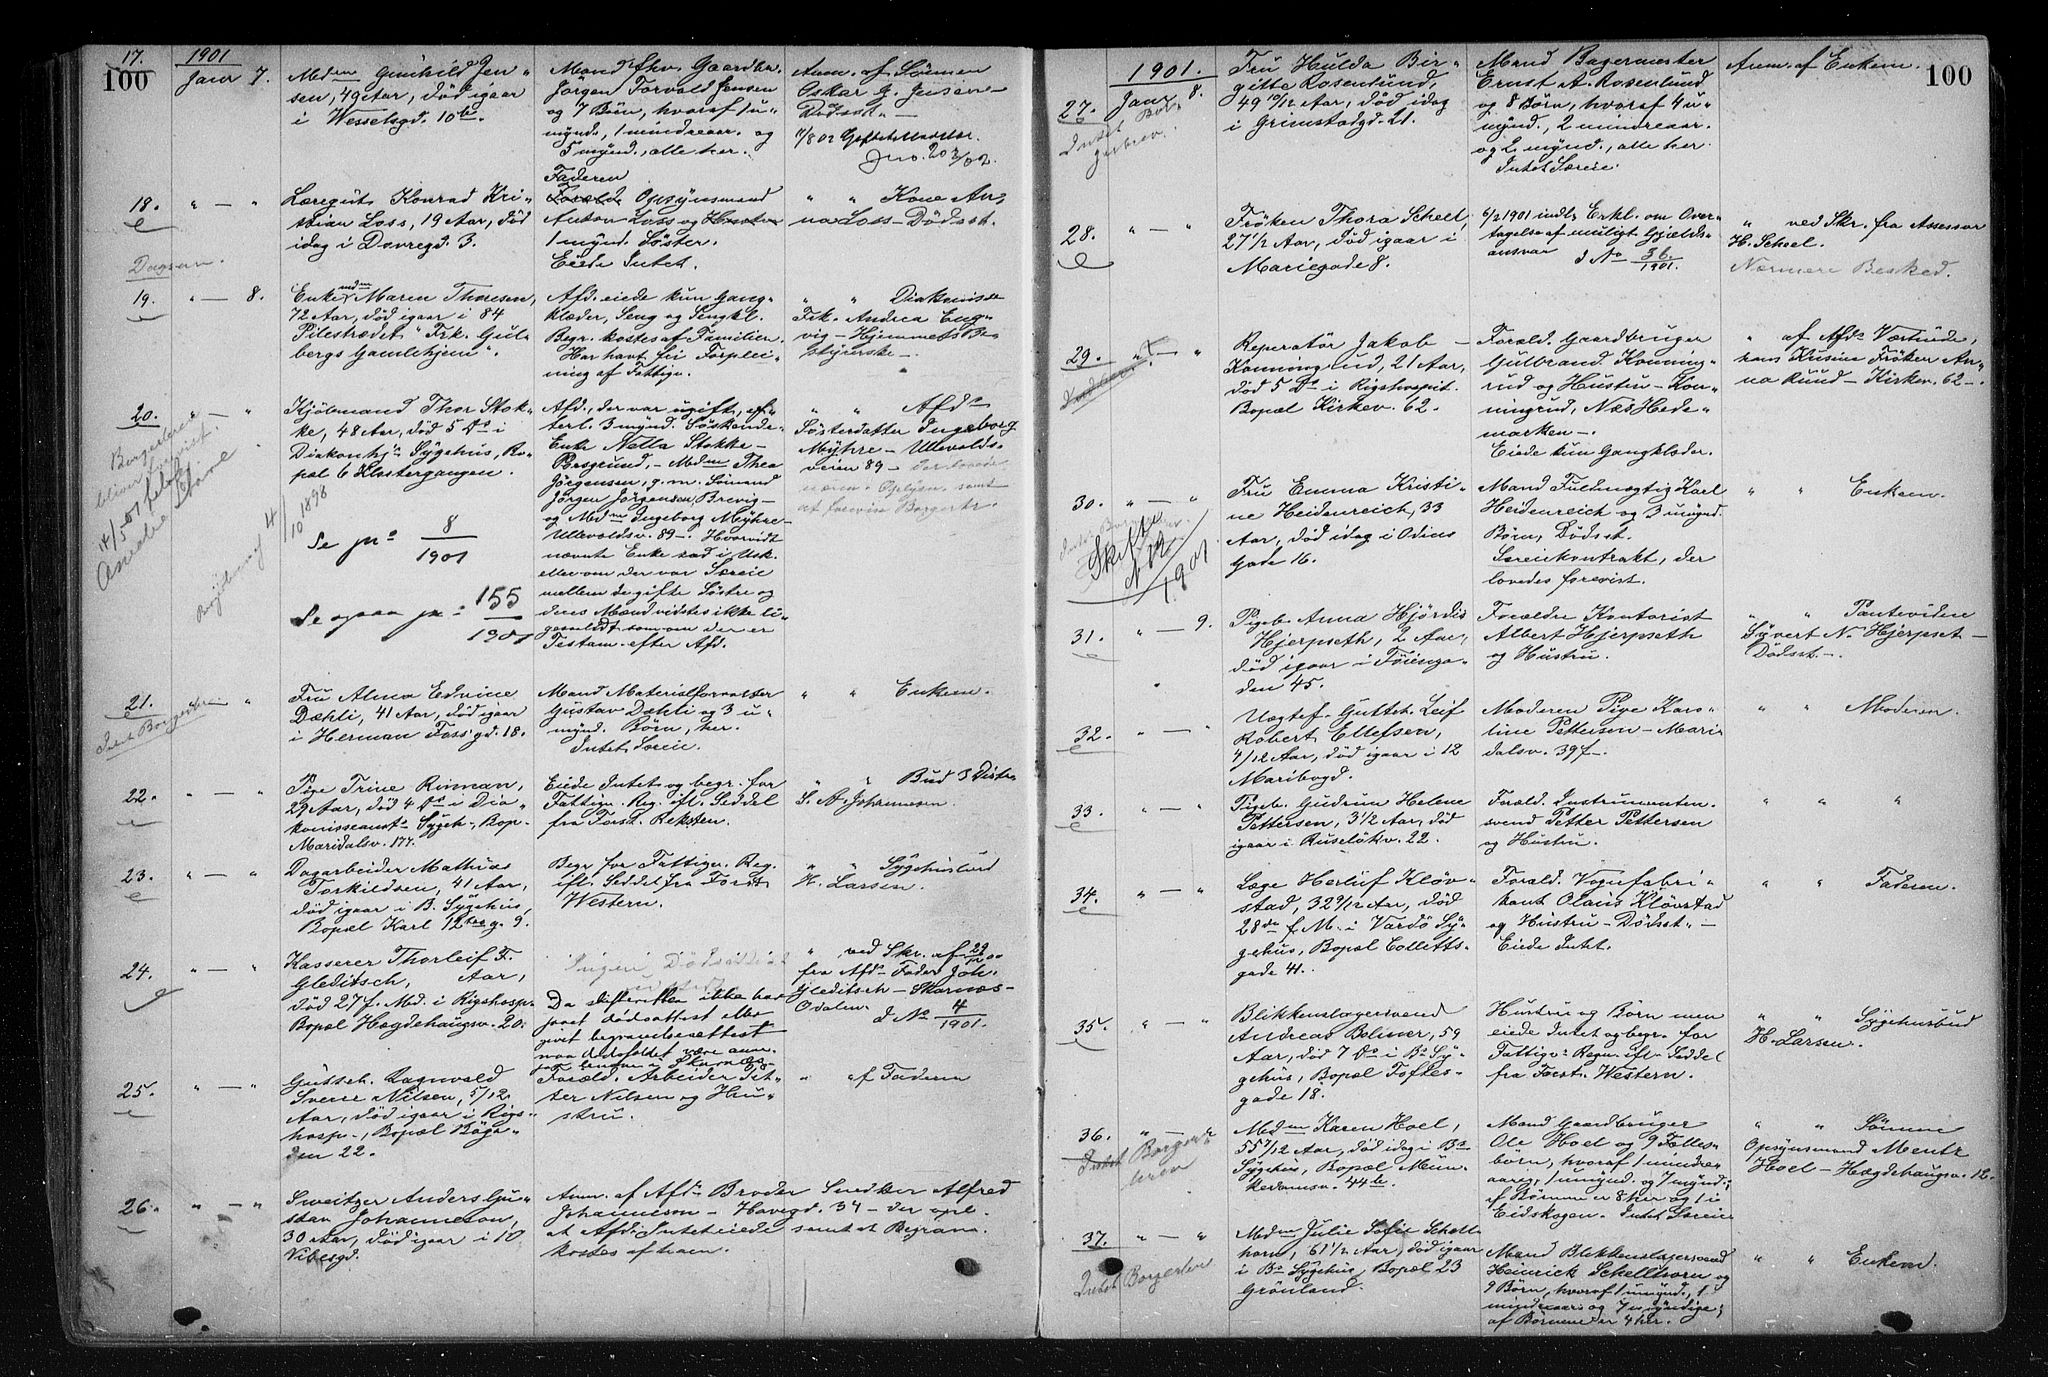 100
17.
1901
Janr 7.
Mdm Gunhild Jen-
sen, 49 Aar, død igaar
i Wesselsgd. 10 b.
Mand fhv. Gaardbr.
Jörgen Torvald Jensen
og 7 Börn, hvoraf 1 u-
mynd., 1 mindreaar. og
5 mynd., alle her.
Anm. af Sönnen
Oskar G. Jensen -
Dödsst. -
18.
" — "
Læregut Konrad Kri-
stian Loss, 19 Aar, död
idag i Dovregd. 3.
Faderen
Opsynsmand
Anton Loss og
1 mynd. Söster.
Eiede Intet.
" " Kone An-
na Loss - Dödsst.
Dagsern.
19.
" — 8.
Enkemdm Maren Thoresen,
72 Aar, död igaar i 84
Pilestrædet "Frk. Gul-
bergs Gamlehjem".
Afd. eiede kun Gang-
klæder, Seng og Sengkl.
Begr. kostes af Familien.
Har havt fri Forplei-
ning af Fattigv.
" " Diakonisse
Frk. Andrea Eng-
vig - Hjemmets Be-
styrerske -.
20.
" — "
Kjöbmand Thor Stok-
ke, 48 Aar, död 5 Ds i
Diakonhj. Sygehus, Bo-
pæl 6 Klostergangen.
Se jno 8/1901
Se ogsaa jno 155/1901
Afd., der var ugift, ef-
terl. 3 mynd. Söskende -
Enke Nella Stokke -
Porsgrund, - Mdm Thea
Jörgensen, g. m. Sömand
Jörgen Jörgensen, Brevig -
og Mdm Ingeborg Myhre -
Ullevoldsv. 89 -. Hvorvidt
nævnte Enke sad i Usk.
eller om der var Særeie
mellem de gifte Söstre og
deres Mænd vidstes ikke li-
gesaalidt som om der er
Testam. efter Afd.
" " Afds
Sösterdatter Ingeborg
Myhre - Ullevolds-
veien 89 -
21.
Intet Borgerbrev
"
Fru Alma Edvine
Dæhli, 41 Aar, död igaar
i Herman Foss'gd. 18.
Mand Materialforvalter
Gustav Dæhli og 3 u-
mynd. Börn, her.
Intet Særeie.
" " Enkem.
22.
" — "
Pige Trine Rinman,
29 Aar, död 4 Ds i Dia-
konisseanst. Sygeh., Bop.
Maridalsv. 177.
Eiede Intet og begr. for
Fattigv. Reg. ifl. Seddel
fra Forst. Reksten.
" " Bud 3 Distr.
S. A. Johannesen.
23.
" — "
Dagarbeider Mathias
Torkildsen, 41 Aar,
död igaar i B. Sygehus,
Bopæl Karl 12tes g. 9.
Begr. for Fattigv. Reg.
ifl. Seddel fra Forst.
Western.
" " Sygehusbud
H. Larsen.
24.
" — "
Kasserer Thorleif F.
Gleditsch, Aar,
död 27 f. Md. i Rigshosp.
Bopæl Hægdehaugsv. 20.
Da skifteretten ikke har
faaet dödsattest eller
givet begravelsesattest
maa dödsfaldet være anm.
" ved Skr. af 29/12 00
fra Afds Fader Joh.
Gleditsch - Skarnæs -
Odalen.
d No 4/1901.
25.
" — "
Guttebh. Ragnvald
Sverre Nilsen, 5/12
Aar, död igaar i Rigs-
hosp., Bopæl Böga-
den 22.
Foræld. Arbeider Pet-
ter Nilsen og Hu-
stru.
" af Faderen
26.
" — "
Sveitzer Anders Gu-
stav Johanneson,
30 Aar, död igaar i 10
Vibesgd.
Anm. af Afds Broder Snedker Alfred
Johanneson - Havegd. 34 - der opl.
at Afd. Intet eiede samt at Begrav.
kostes af ham.
100
1901.
27.
Janr 8.
Fru Hulda Bir-
gitte Rosenlund,
49 10/12 Aar, död idag
i Grimstadgd. 21.
Mand Bagermester
Ernst A. Rosenlund
og 8 Börn, hvoraf 4 u-
mynd., 2 mindreaar.
og 2 mynd., alle her.
Intet Særeie.
Anm. af Enkem.
28.
" — "
Fröken Thora Scheel,
27 1/2 Aar, död igaar i
Mariegade 8.
6/2 1901 indl. Erkl. om Over-
tagelse af muligt Gjælds-
ansvar d No 36/1901.
" ved Skr. fra Assessor
H. Scheel.
Nærmere Besked.
29.
" — "
Reperatör Jakob
Konningrud, 21 Aar,
död 5 Ds i Rigshospit.
Bopæl Kirkev. 62.
Foræld. Gaardbruger
Gulbrand Konning-
rud og Hustru - Kon-
ningrud, Næs Hede-
marken -.
Eiede kun Gangklæder.
" af Afds Værtinde,
hans Kusine Fröken An-
na Ruud - Kirkev. 62 -.
30.
" — "
Skifte
N 12/1901
Fru Emma Kristi-
ne Heidenreich, 33
Aar, död idag i Odins
Gade 16.
Mand Fuldmægtig Karl
Heidenreich og 3 umynd.
Börn, Dödsst.
Særeiekontrakt, der
lovedes forevist.
" " Enkem.
31.
" — 9.
Pigeb. Anna Hjördis
Hjerpseth, 2 Aar,
död igaar i Töienga-
den 45.
Forældre Kontorist
Albert Hjerpseth
og Hustru.
" "
Syvert N. Hjerpset -
Dödsst -.
32.
" — "
Uægtef. Gutteb. Leif
Robert Ellefsen,
4/12 Aar, död igaar i 12
Maribogd.
Moderen Pige Karo-
line Pettersen - Mari-
dalsv. 39f -.
" " Moderen.
33.
" — "
Pigeb. Gudrun Helene
Pettersen, 3 1/2 Aar, död
igaar i Ruselökv. 22.
Foræld. Instrumenten-
svend Petter Pettersen
og Hustru.
" " "
34.
" — "
Læge Herluf Klöv-
stad, 32 9/12 Aar, död
28de f. M. i Vardö Sy-
gehus, Bopæl Colletts-
gade 41.
Foræld. Vognfabri-
kant Olaus Klövstad
og Hustru - Dödsst -
Eiede Intet.
" " Faderen.
35.
" — "
Blikkenslagersvend
Andreas Bolmer, 59
Aar, död 7 Ds i Bs Sy-
gehus, Bopæl Toftes-
gade 18.
Hustru og Börn men
eiede Intet og begr. for
Fattigv. Regn. ifl. Seddel
fra Forst. Western.
" " Sygehusbud
H. Larsen.
36.
Intet Borger-
brev
" — "
Mdm Karen Hoel,
55 7/12 Aar, död idag i Bs
Sygehus, Bopæl Mun-
kedamsv. 44 b.
Mand Gaardbruger
Ole Hoel og 9 Fælles-
börn, hvoraf 1 mindre-
aarig, 1 umynd. og 7 mynd.;
af Börnene er 8 her og 1 i
Eidskogen. Intet Særeie
" " Sönne
Opsynsmand Mentz
Hoel - Hægdehaugsv. 12.
37.
Intet Borgerbrev
" — "
Mdm Julie Sofie Schell-
horn, 61 1/2 Aar, död igaar
i Bs Sygehus, Bopæl 23
Grönland.
Mand Blikkenslagersvend
Heinrick Schellhorn og
9 Börn, hvoraf 1 umynd., 1
mindreaar. og 7 myndige;
af Börnene er 4 her.
" " Enkem.